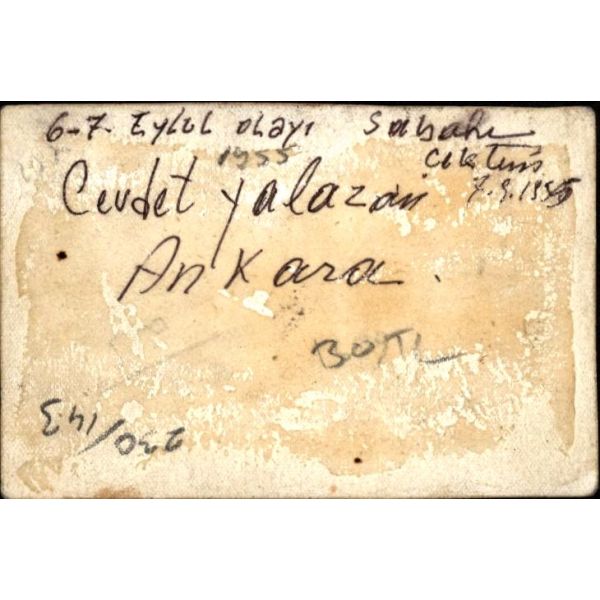 6-7. Eylül olayı Sabahı
1955 çektim
Cevdet Yalazan 7.9.1955
Ankara.
30TL
230/143